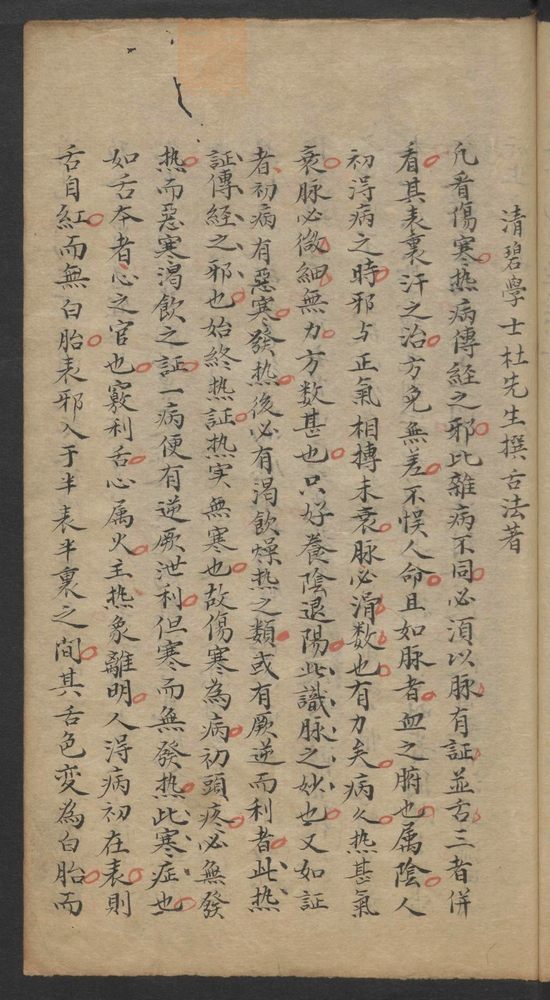 清碧學士杜先生撰舌法著
凡看傷寒热病傳經之邪此雜病不同必須以脉有証並舌三者併
看其表裏汗之治方免無差不悮人命且如脉者血之腑也属陰人
初淂病之時邪与正氣相搏未衰脉必滑数也有力矣病久热甚氣
衰脉必微細無力方数甚也只好養陰退陽此識脉之妙也又如証
者初病有惡寒發热後必有渴飲燥热之類或有厥逆而利者此热
証傳經之邪也始終热証热实無寒也故傷寒為病初頭疼必無發
热而惡寒渴飲之証一病便有逆厥泄利但寒而無發热此寒症也
如舌本者心之官也竅利舌心属火主热象離明人淂病初在表則
舌自紅而無白胎表邪入于半表半裏之間其舌色変為白胎而